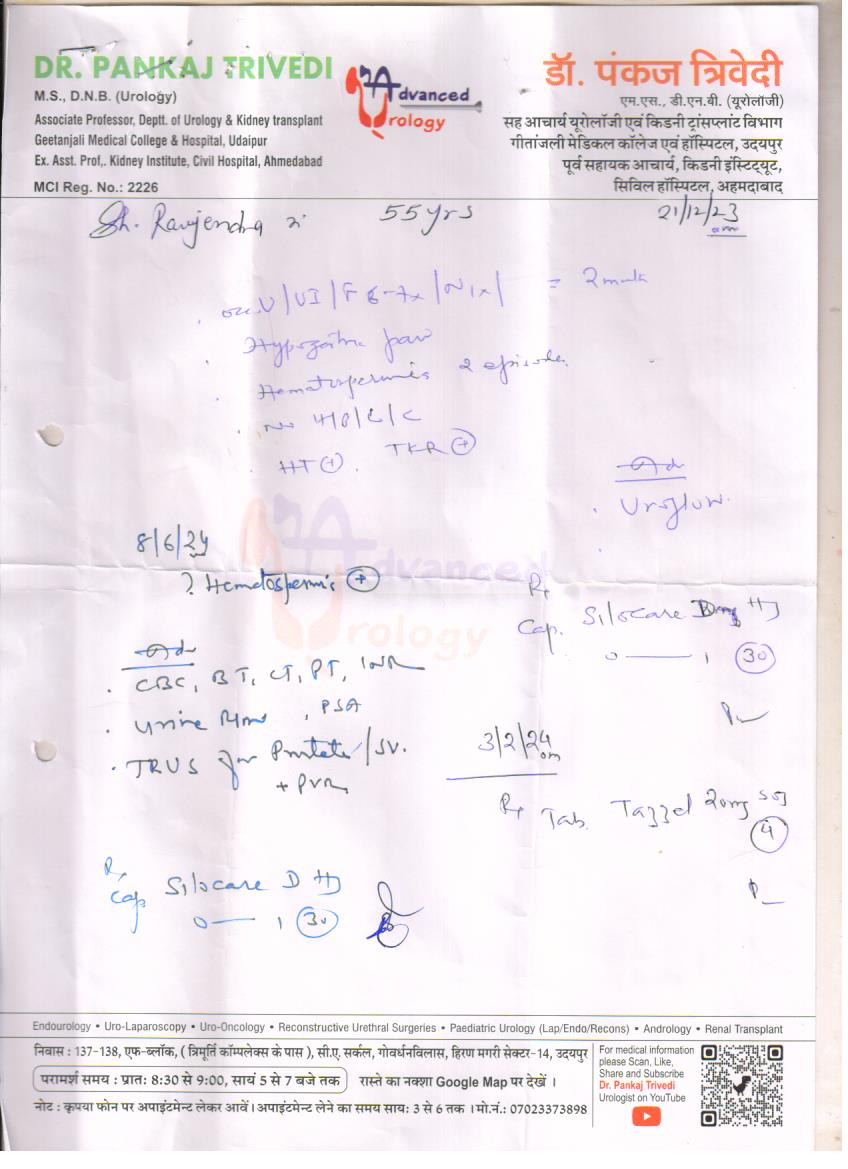 DR. PANKAJ TRIVEDI
M.S., D.N.B. (Urology)
Associate Professor, Deptt. of Urology & Kidney transplant
Geetanjali Medical College & Hospital, Udaipur
Ex. Asst. Prof,. Kidney Institute, Civil Hospital, Ahmedabad
MCI Reg. No.: 2226
Advanced
Urology
डॉ. पंकज त्रिवेदी
एम.एस., डी.एन.बी. (यूरोलॉजी)
सह आचार्य यूरोलॉजी एवं किडनी ट्रांसप्लांट विभाग
गीतांजली मेडिकल कॉलेज एवं हॉस्पिटल, उदयपुर
पूर्व सहायक आचार्य, किडनी इंस्टिट्यूट,
सिविल हॉस्पिटल, अहमदाबाद
Sh. 55 yrs 21/12/23
Hematospermis 2 episodes
HT + . TKR +
Adv
. Uroflow.
Rx
Cap. Silocare D HS
0 — 1 30
3/2/24
Rx Tab. Tazzel 20mg SOS
4
8/6/24
? Hematospermis +
Adv
. CBC, BT, CT, PT, INR
. Urine R/m , PSA
. TRUS for Prostate/SV.
+ PVR
Rx
Cap Silocare D HS
0 — 1 30
Advanced
Urology
Endourology • Uro-Laparoscopy • Uro-Oncology • Reconstructive Urethral Surgeries • Paediatric Urology (Lap/Endo/Recons) • Andrology • Renal Transplant
निवास : 137-138, एफ-ब्लॉक, ( त्रिमूर्ति कॉम्पलेक्स के पास ), सी.ए. सर्कल, गोवर्धनविलास, हिरण मगरी सेक्टर-14, उदयपुर
परामर्श समय : प्रातः 8:30 से 9:00, सायं 5 से 7 बजे तक रास्ते का नक्शा Google Map पर देखें ।
नोट : कृपया फोन पर अपाइंटमेन्ट लेकर आवें । अपाइंटमेन्ट लेने का समय सायः 3 से 6 तक । मो.नं.: 07023373898
For medical information
please Scan, Like,
Share and Subscribe
Dr. Pankaj Trivedi
Urologist on YouTube